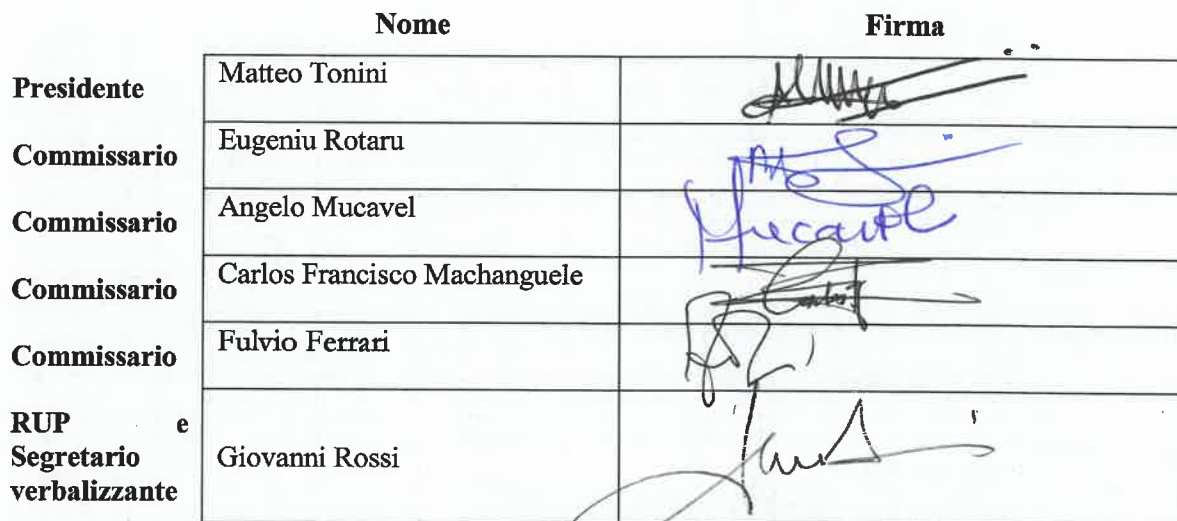 Nome Firma
Presidente Matteo Tonini
Commissario Eugeniu Rotaru
Commissario Angelo Mucavel Mucavel
Commissario Carlos Francisco Machanguele
Commissario Fulvio Ferrari
RUP e
Segretario Giovanni Rossi
verbalizzante